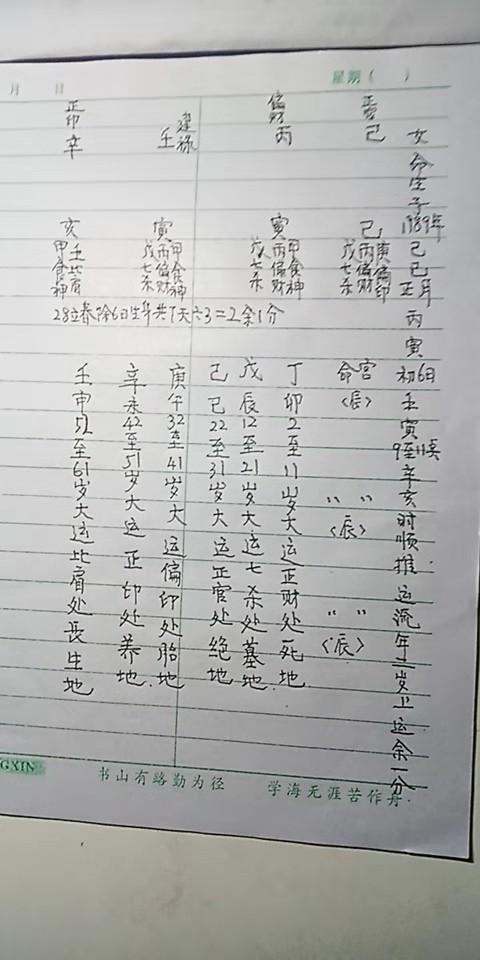 月 日 星期( )
女命生子1989年己巳正月丙寅初6日壬寅9至11点辛亥时顺推运流年二岁上运余一分
己
偏财 丙
建禄 壬
正印 辛
巳 寅 寅 亥
丙偏财 戊七杀 庚偏印
甲食神 丙偏财 戊七杀
甲食神 丙偏财 戊七杀
壬比肩 甲食神
28立春除6日生年共7天六3=2余1分
命宫〈辰〉
〃 〃〈辰〉
〃 〃〈辰〉
丁卯2至11岁大运正财处死地
戊辰12至21岁大运七杀处墓地.
己巳22至31岁大运正官处绝地
庚午32至41岁大运偏印处胎地
辛未42至51岁大运正印处养地.
壬申52至61岁大运比肩处長生地
GXIN 书山有路勤为径 学海无涯苦作舟